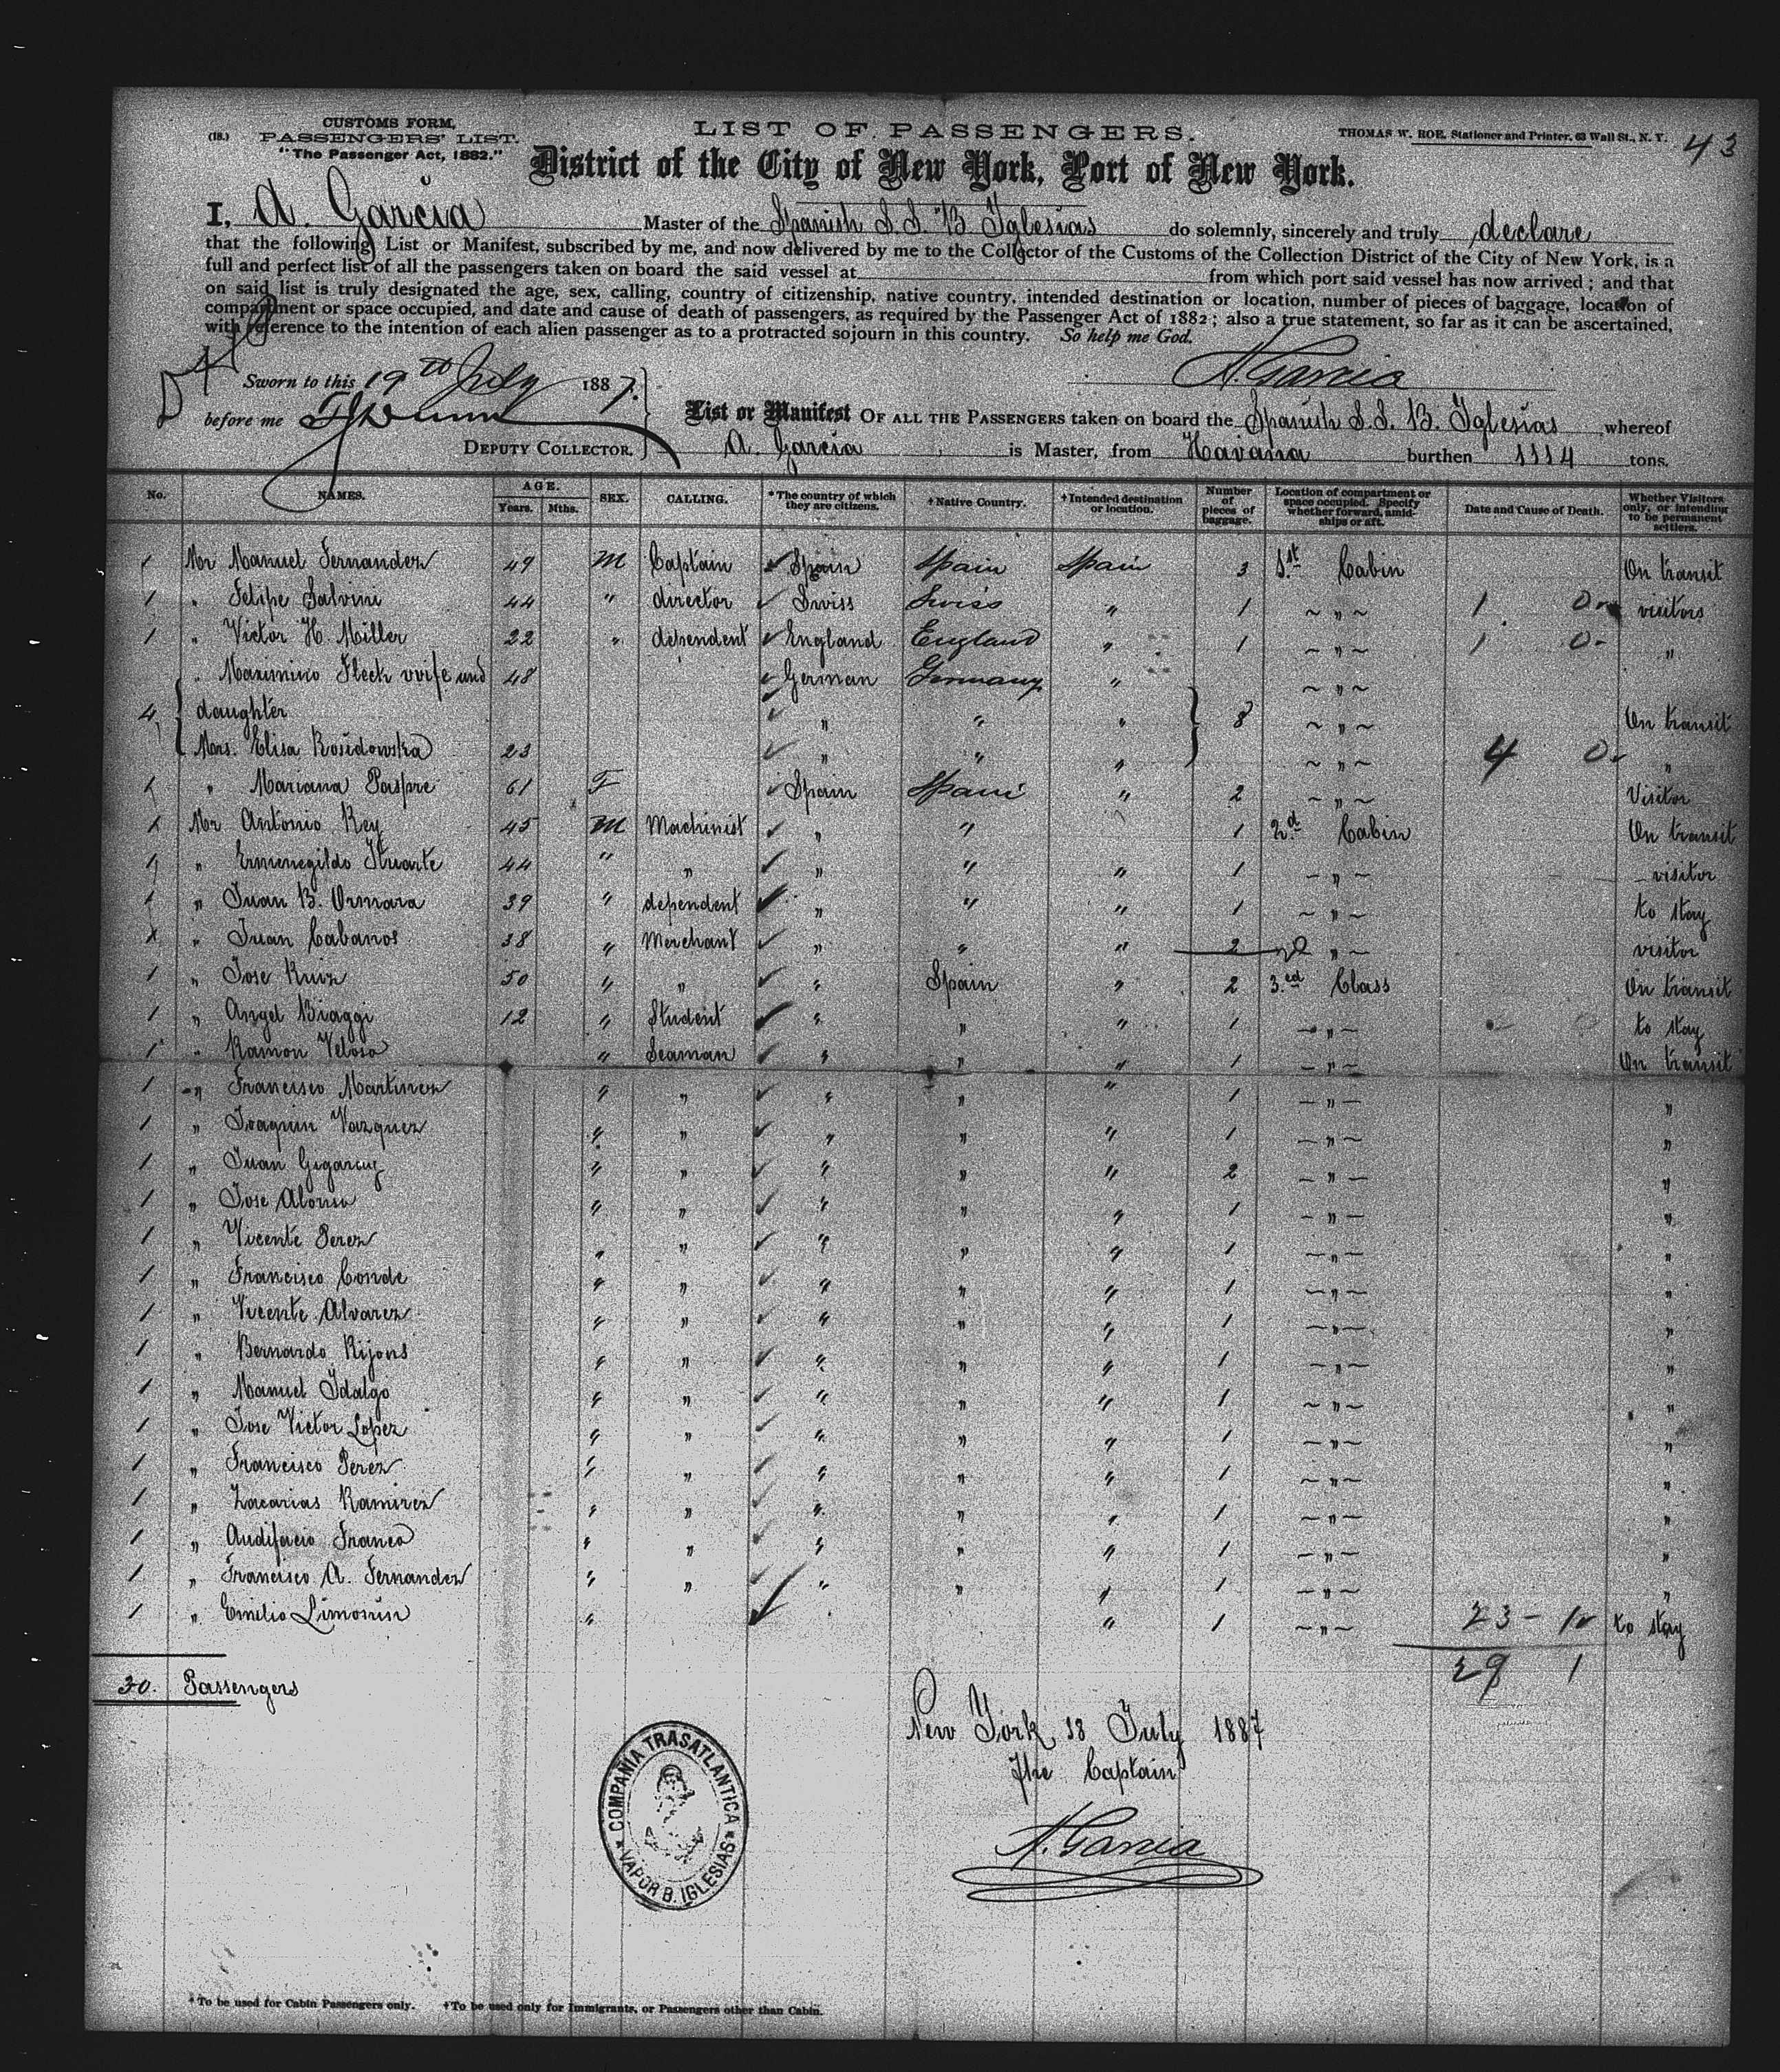 43
CUSTOMS FORM.
(18.) PASSENGERS' LIST.
"The Passenger Act, 1882."
LIST OF PASSENGERS.
THOMAS W. ROE, Stationer and Printer, 63 Wall St., N. Y.
District of the City of New York, Port of New York.
I, A. Garcia Master of the Spanish S. S. B Yglesias do solemnly, sincerely and truly declare
that the following List or Manifest, subscribed by me, and now delivered by me to the Collector of the Customs of the Collection District of the City of New York, is a
full and perfect list of all the passengers taken on board the said vessel at from which port said vessel has now arrived; and that
on said list is truly designated the age, sex, calling, country of citizenship, native country, intended destination or location, number of pieces of baggage, location of
compartment or space occupied, and date and cause of death of passengers, as required by the Passenger Act of 1882; also a true statement, so far as it can be ascertained,
with reference to the intention of each alien passenger as to a protracted sojourn in this country. So help me God.
Sworn to this 19th July 1887.
A. Garcia
before me
DEPUTY COLLECTOR.
List or Manifest OF ALL THE PASSENGERS taken on board the Spanish S. S. B. Yglesias whereof
A. Garcia is Master, from Havana burthen 1114 tons.
No. NAMES. AGE. Years. Mths. SEX. CALLING. *The country of which they are citizens. †Native Country. †Intended destination or location. Number of pieces of baggage. Location of compartment or space occupied. Specify whether forward, amidships or aft. Date and Cause of Death. Whether Visitors only, or intending to be permanent settlers.
1 Mr Manuel Fernandez 49 M Captain Spain Spain Spain 3 1st Cabin On transit
1 " Felipe Salvini 44 " director Swiss Swiss " 1 ~ " ~ 1 0 visitors
1 " Victor H. Miller 22 " dependent England England " 1 ~ " ~ 1 0 "
" Maximino Fleck wife und 48 German Germany " ~ " ~
4 daughter " " " 8 ~ " ~ On transit
Mrs. Elisa Rosidowska 23 " " " ~ " ~ 4 0 "
1 " Mariana Paspre 61 F Spain Spain " 2 ~ " ~ Visitor
1 Mr Antonio Rey 45 M Machinist " " 1 2d Cabin On transit
1 " Ermenegildo Ituarte 44 " " " " " 1 ~ " ~ visitor
1 " Juan B. Ormara 39 " dependent " " " 1 ~ " ~ to stay
1 " Juan Cabanos 38 " Merchant " " " 2 " ~ visitor
1 " Jose Ruiz 50 " " " Spain " 2 3.ed Class On transit
1 " Angel Biaggi 12 " Student " " " 1 ~ " ~ to stay
1 " Ramon Veloso " Seaman " " " 1 ~ " ~ On transit
1 " Francisco Martinez " " " " " 1 ~ " ~ "
1 " Joaquin Vazquez " " " " " 1 ~ " ~ "
1 " Juan " " " " " 2 ~ " ~ "
1 " Jose Alonso " " " " " 1 ~ " ~ "
1 " Vicente Perez " " " " " 1 ~ " ~ "
1 " Francisco Conde " " " " " 1 ~ " ~ "
1 " Vicente Alvarez " " " " " 1 ~ " ~ "
1 " Bernardo Rijons " " " " " 1 ~ " ~ "
1 " Manuel Idalgo " " " " " 1 ~ " ~ "
1 " Jose Victor Lopez " " " " " 1 ~ " ~ "
1 " Francisco Perez " " " " " 1 ~ " ~ "
1 " Zacarias Ramirez " " " " " 1 ~ " ~ "
1 " Audifacio Franco " " " " " 1 ~ " ~ "
1 " Francisco A. Fernandez " " " " " 1 ~ " ~ "
1 " Emilio Limosin " " 1 ~ " ~ 23 - 1 to stay
29 1
30. Passengers
New York, 18 July 1887
The Captain
A. Garcia
COMPAÑIA TRASATLANTICA
* VAPOR B. IGLESIAS *
* To be used for Cabin Passengers only. †To be used only for Immigrants, or Passengers other than Cabin.